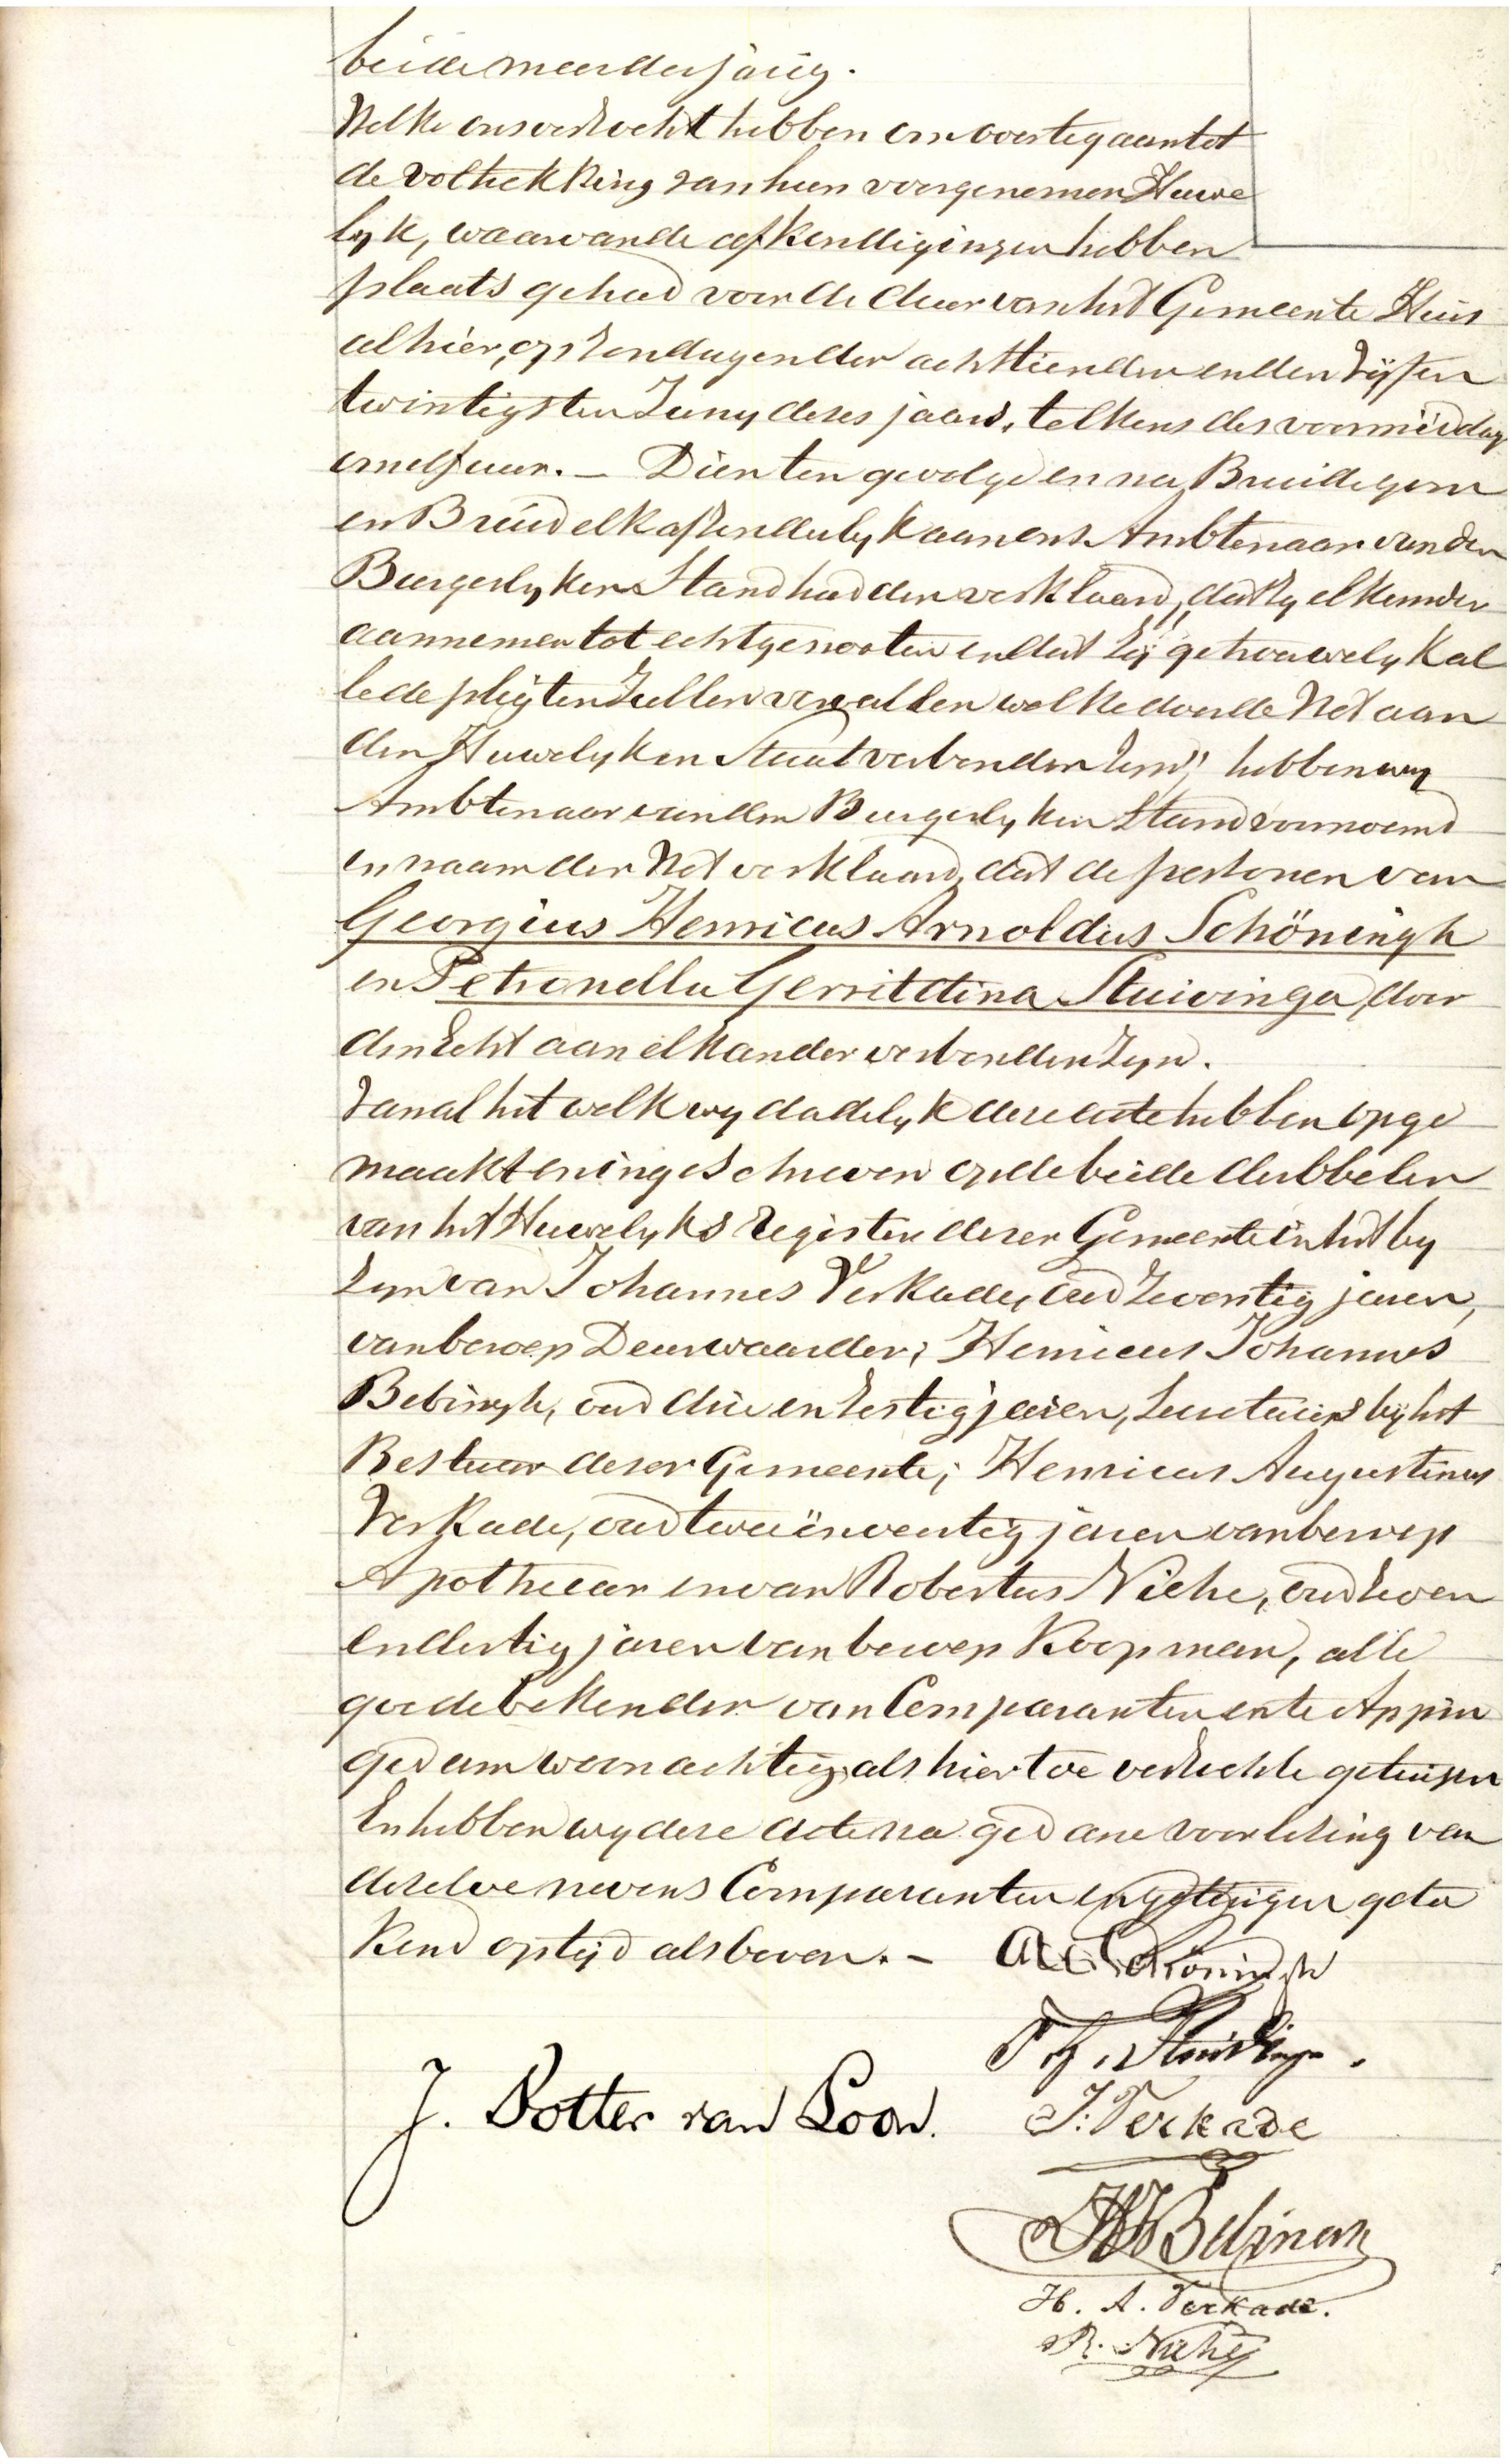 beide meerderjarig.
Welke ons verzocht hebben om overtegaan tot
de voltrekking van hun voorgenomen Huwe
lyk, waarvan de afkondigingen hebben
plaats gehad voor de deur van het Gemeente Huis
alhier, op Zondagen den achttienden en den Vijfen
twintigsten Juny dezes jaars, telkens des voormiddags
om elf uur. — Dien ten gevolge en na Bruidegom
en Bruid elk afzonderlyk aan ons Ambtenaar van den
Burgerlyken Stand hadden verklaard, dat zy elkander
aannemen tot echtgenooten en dat zij getrouwelyk al
le de pligten zullen vervullen welke door de Wet aan
den Huwelyken Staat verbonden zyn; hebben wy
Ambtenaar van den Burgerlyken Stand voornoemd
in naam der Wet verklaard, dat de personen van
Georgius Henricus Arnoldus Schöningh
en Petronella Gerritdina Stuivinga, door
den Echt aan elkander verbonden zyn.
Van al het welk wy dadelyk deze acte hebben opge
maakt en ingeschreven op de beide dubbelen
van het Huwelyks register dezer Gemeente in het by
zyn van Johannes Verkade, oud zeventig jaren,
van beroep Deurwaarder; Henricus Johannes
Bebingh, oud drie en zestig jaren, Secretaris bij het
Bestuur dezer Gemeente; Henricus Augustinus
Verkade, oud twee en veertig jaren van beroep
Apothecar en van Robertus Niehe, oud zeven
en dertig jaren van beroep Koopman, alle
goede bekenden van Comparanten en te Appin
gedam woonachtig, als hiertoe verzochte getuigen
En hebben wy deze acte na gedane voorlezing van
dezelve nevens Comparanten en getuigen gete
kend op tijd als boven. — Schöningh
P. G. Stuivinga.
J. Botter van Loon. J. Verkade
HJBebingh
H. A. Verkade.
R. Niehe